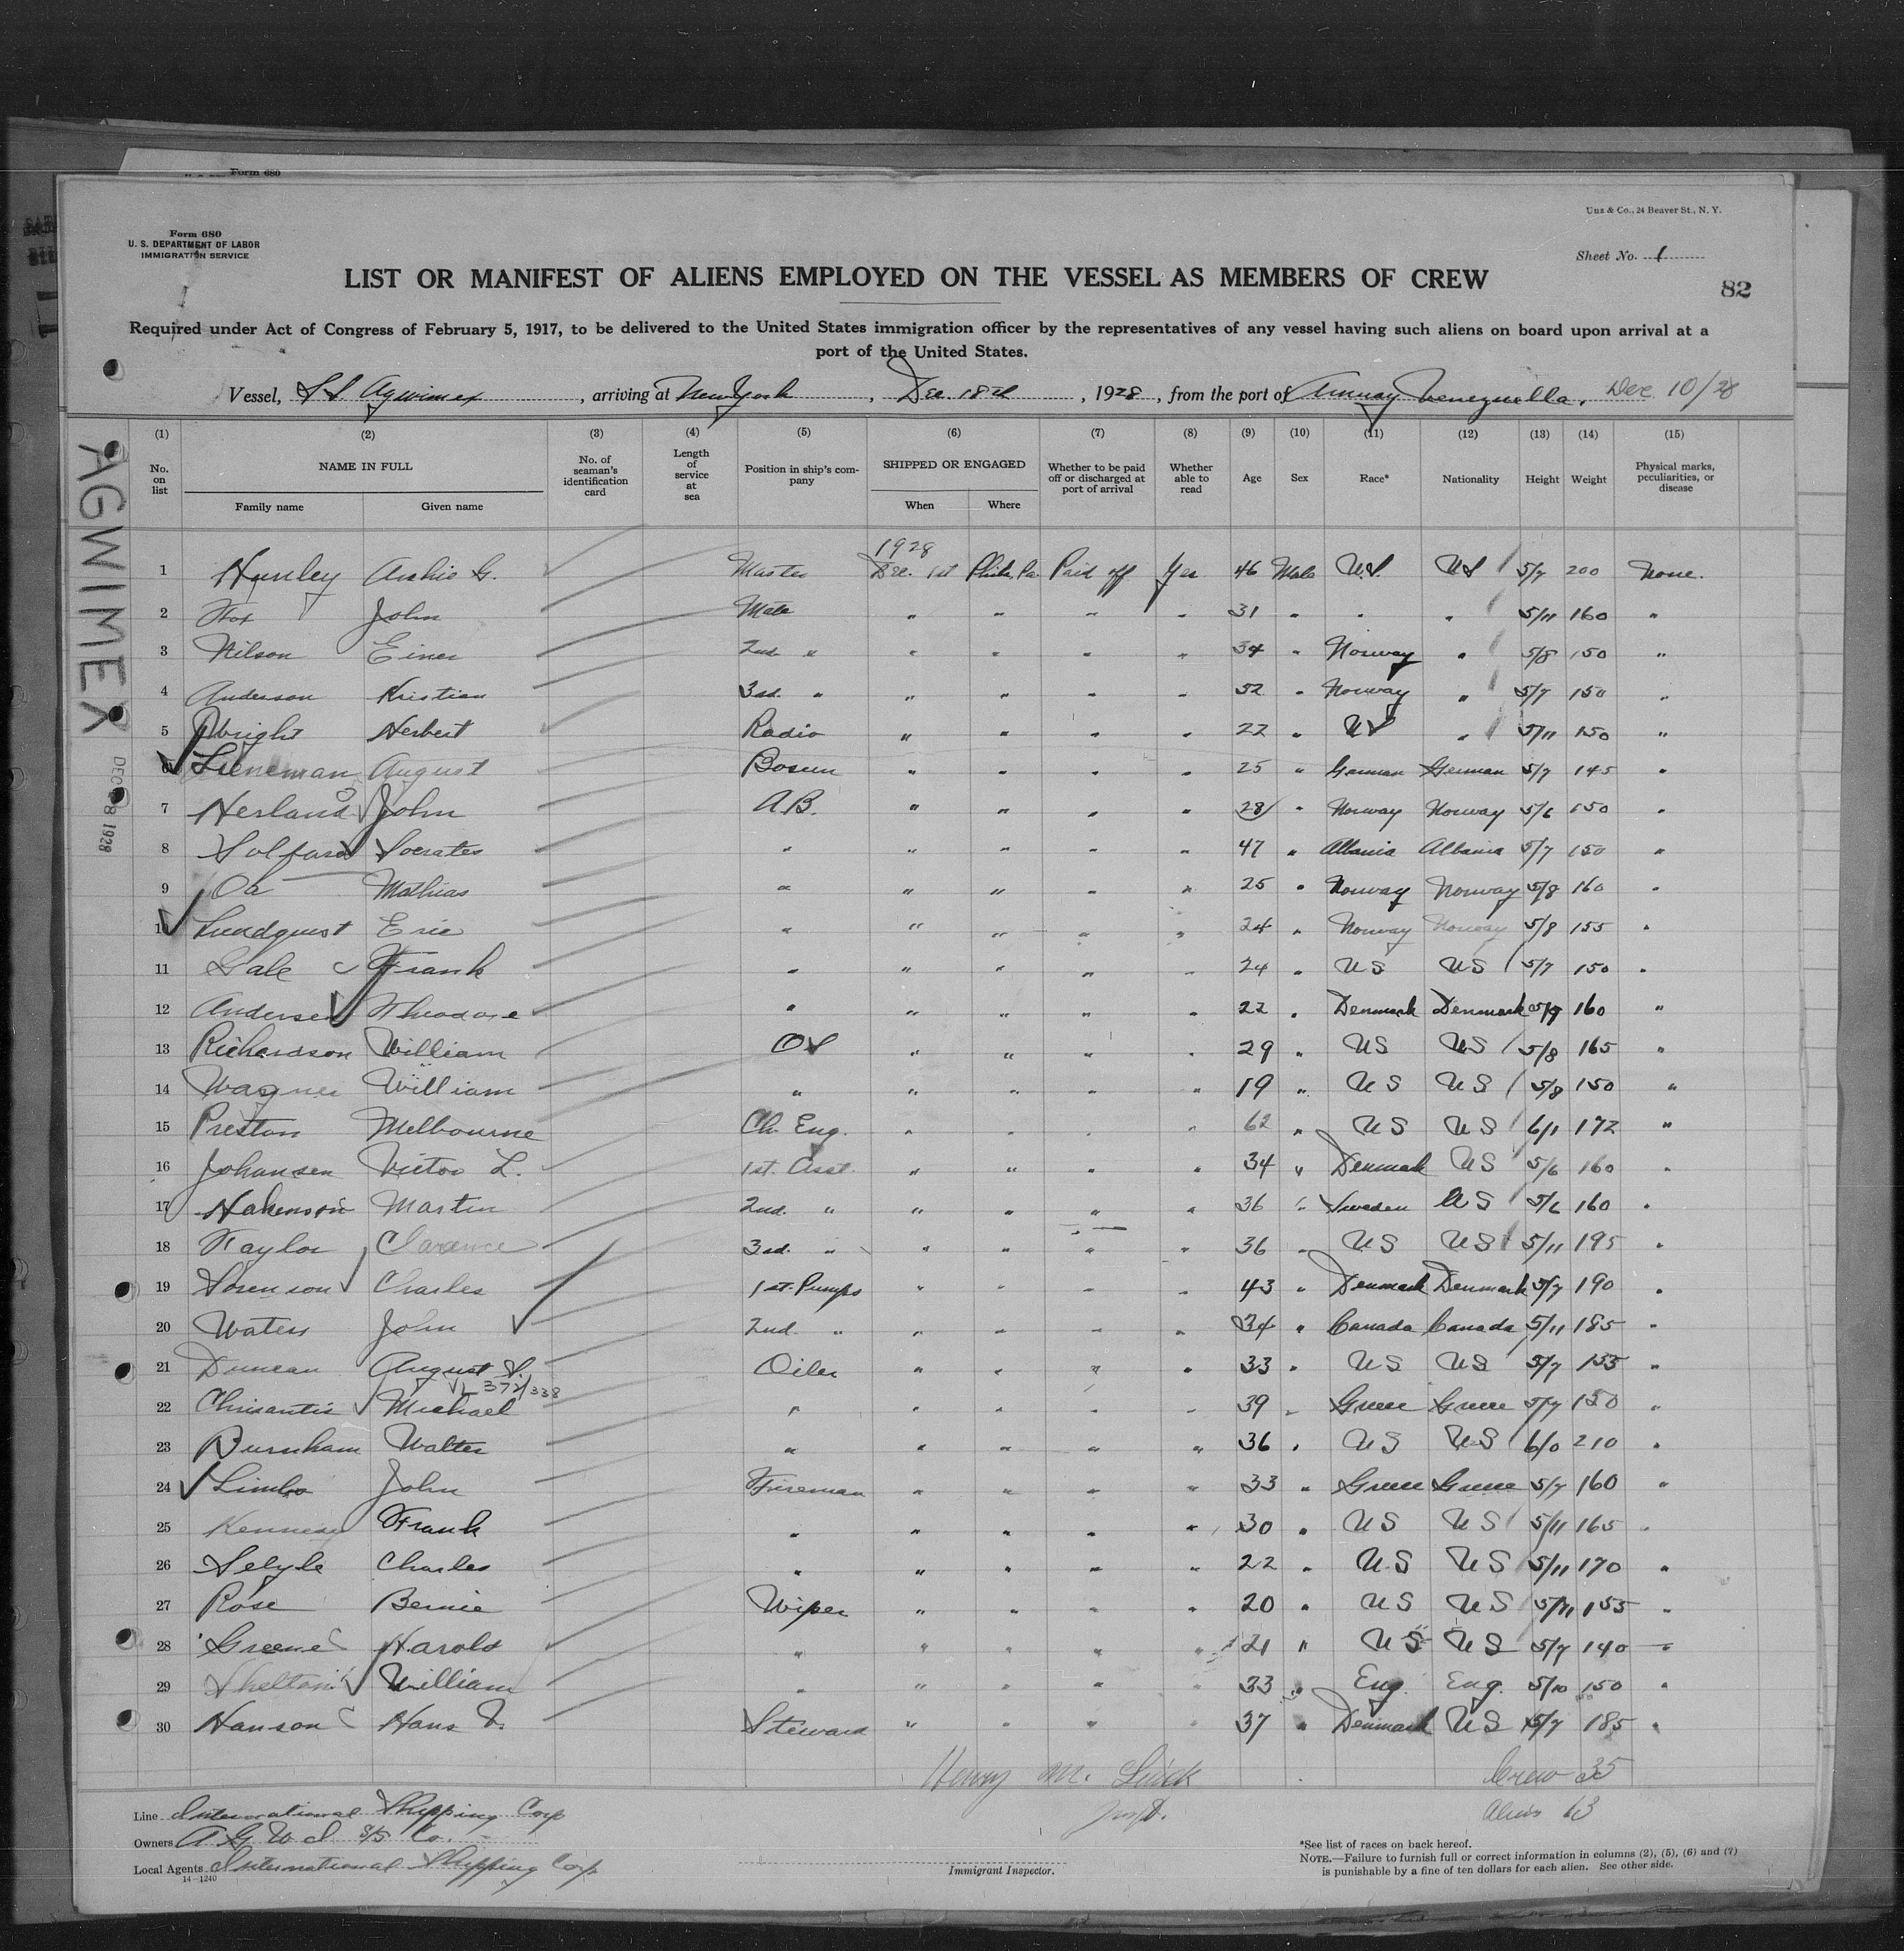 Form 680
Unz & Co., 24 Beaver St., N. Y.
Form 680
U. S. DEPARTMENT OF LABOR
IMMIGRATION SERVICE
Sheet No. 1
LIST OR MANIFEST OF ALIENS EMPLOYED ON THE VESSEL AS MEMBERS OF CREW
82
Required under Act of Congress of February 5, 1917, to be delivered to the United States immigration officer by the representatives of any vessel having such aliens on board upon arrival at a
port of the United States.
Vessel, SS Agwimex, arriving at New York, Dec. 18th, 1928, from the port of Venezuella, Dec 10/28
AGWIMEX
DEC 18 1928
(1) (2) (3) (4) (5) (6) (7) (8) (9) (10) (11) (12) (13) (14) (15)
No. on list NAME IN FULL No. of seaman's identification card Length of service at sea Position in ship's company SHIPPED OR ENGAGED Whether to be paid off or discharged at port of arrival Whether able to read Age Sex Race* Nationality Height Weight Physical marks, peculiarities, or disease
Family name Given name When Where
1928
1 Archie G. Master Dec. 1st Phila. Pa. Paid off Yes 46 Male U.S. US 5/7 200 None.
2 Fox John Mate " " " " 31 " " " 5/11 160 "
3 Nilson Einer 2nd " " " " " 34 " Norway " 5/8 150 "
4 Anderson Kristian 3rd. " " " " " 52 " Norway " 5/7 150 "
5 Wright Herbert Radio " " " " 22 " US " 5/11 150 "
6 Lieneman August Bosun " " " " 25 " German German 5/7 145 "
7 Herland John A.B. " " " " 28 " Norway Norway 5/6 150 "
8 Socrates " " " " " 47 " Albania Albania 5/7 150 "
9 Oa Mathias " " " " " 25 " Norway Norway 5/8 160 "
10 Lundquist Eric " " " " " 24 " Norway Norway 5/8 155 "
11 Frank " " " " " 24 " US US 5/7 150 "
12 Andersen Theodore " " " " " 22 " Denmark Denmark 5/9 160 "
13 Richardson William OS " " " " 29 " US US 5/8 165 "
14 Wagner William " " " " " 19 " US US 5/8 150 "
15 Preston Melbourne Ch. Eng. " " " " 62 " US US 6/1 172 "
16 Johansen Victor L. 1st. Asst. " " " " 34 " Denmark US 5/6 160 "
17 Hakenson Martin 2nd. " " " " " 36 " Sweden US 5/6 160 "
18 Taylor Clarence 3rd. " " " " " 36 " US US 5/11 195 "
19 Sorenson Charles 1st. Pumps " " " " 43 " Denmark Denmark 5/7 190 "
20 Waters John 2nd. " " " " " 34 " Canada Canada 5/11 185 "
21 Duncan August S. Oiler " " " " 33 " US US 5/7 155 "
372/338
22 Chrisantis Michael " " " " " 39 " Greece Greece 5/7 150 "
23 Burnham Walter " " " " " 36 " US US 6/0 210 "
24 Limbo John Fireman " " " " 33 " Greece Greece 5/7 160 "
25 Frank " " " " " 30 " US US 5/11 165 "
26 Charles " " " " " 22 " US US 5/11 170 "
27 Rose Bernie Wiper " " " " 20 " US US 5/11 155 "
28 Greene Harold " " " " " 21 " US US 5/7 140 "
29 Shelton William " " " " " 33 " Eng. Eng. 5/10 150 "
30 Hanson Hans Steward " " " " 37 " Denmark US 5/7 185 "
Henry M. Crew 35
Insp. Aliens 13
Line International Shipping Corp
Owners A G W I S/S Co.
Local Agents International Shipping Corp
14—1240
Immigrant Inspector.
*See list of races on back hereof.
NOTE.—Failure to furnish full or correct information in columns (2), (5), (6) and (7)
is punishable by a fine of ten dollars for each alien. See other side.